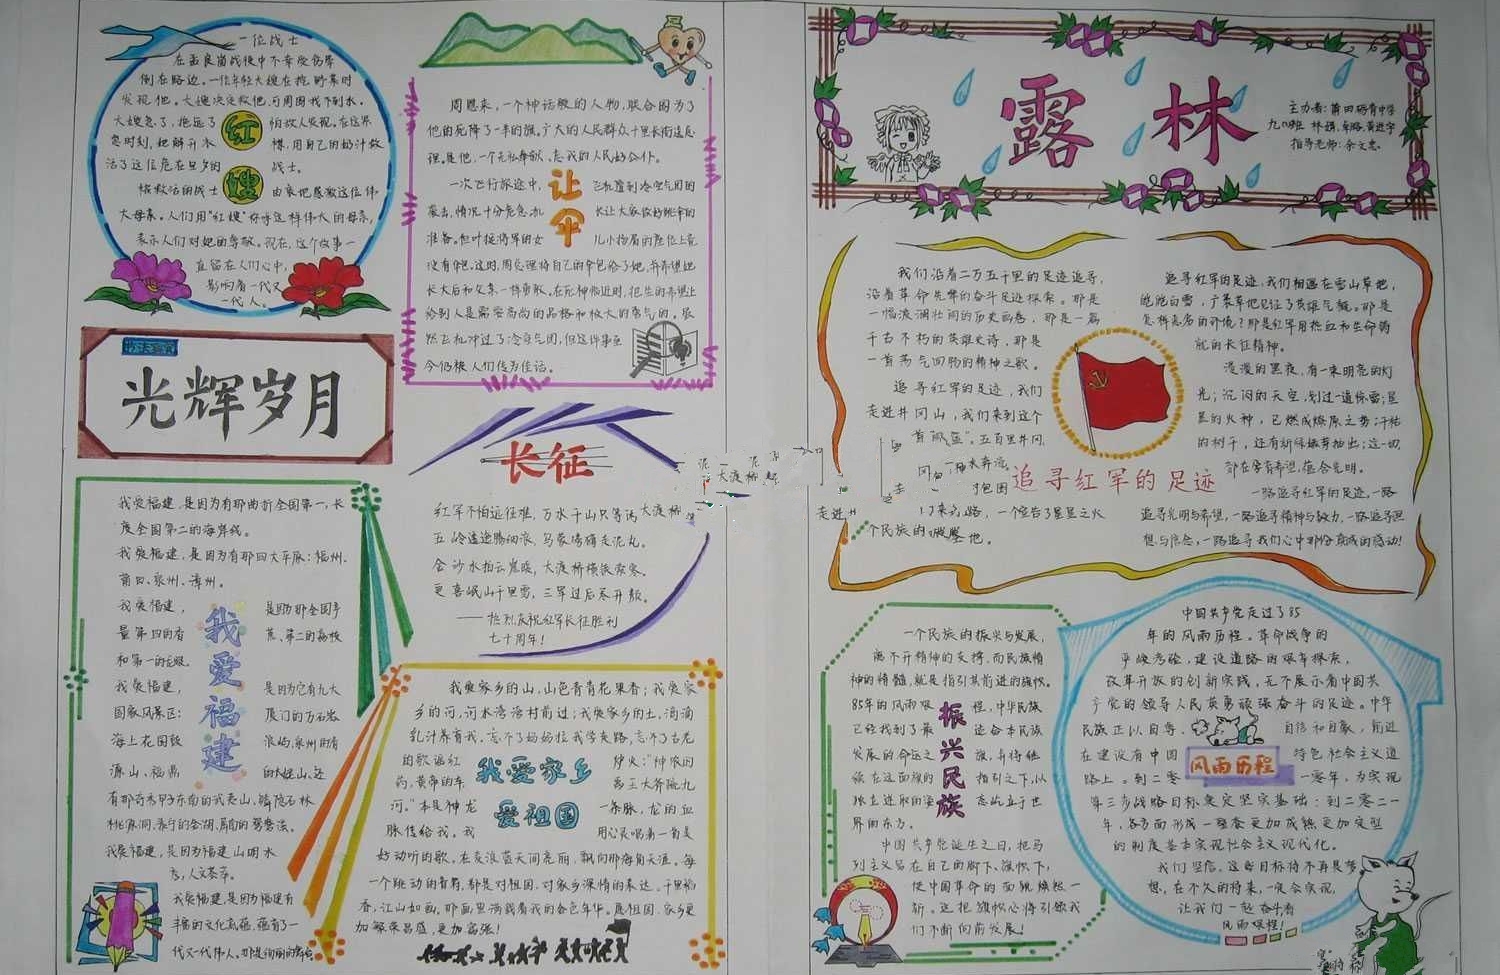 一位战士
在孟良崮战役中不幸受伤晕
倒在路边。一位年轻大嫂在挖野菜时
发现他。大嫂决定救他，可周围找不到水。
大嫂急了，拖远了
怕敌人发现。在这紧
急时刻，她解开衣
襟，用自己的奶汁救
活了这位危在旦夕的
战士。
红嫂
被救活的战士
由衷地感激这位伟
大母亲。人们用“红嫂”称呼这样伟大的母亲，
表示人们对她的尊敬。现在，这个故事一
直留在人们心中，
影响着一代又
一代人。
周恩来，一个神话般的人物，联合国为了
他的死降了一半的旗。广大的人民群众十里长街
一次飞行旅途中，
飞机遭到冷空气团的
袭击，情况十分危急，机
长让大家做好跳伞的
让伞
准备。但叶挺将军的女
儿小扬眉的座位上竟
没有伞包。这时，周总理将自己的伞包给了她，并希望她
长大后和父亲一样勇敢。在死神临近时，把生的希望让
给别人是需要高尚的品格和极大的勇气的。虽
然飞机冲过了冷空气团，但这件事至
今仍被人们传为佳话。
光辉岁月
长征
红军不怕远征难，万水千山只等闲
五岭逶迤腾细浪，乌蒙磅礴走泥丸。
金沙水拍云崖暖，大渡桥横铁索寒。
更喜岷山千里雪，三军过后尽开颜。
——热烈庆祝红军长征胜利
七十周年！
我爱福建，是因为有那曲折全国第一，长
度全国第二的海岸线。
我爱福建，是因为有那四大车脉：福州、
莆田、泉州、漳州。
我爱福建，
是因为那全国亨
量第四的香
蕉、第二的荔枝
和第一的龙眼。
我爱福建，
是因为它有九大
国家风景区：
厦门的万石岩
海上花园鼓
浪屿，泉州的清
源山、福鼎
的太姥山，还
我爱福建
有那奇秀甲于东南的武夷山，鳞隐石林
桃源洞，泰宁的金湖，屏南的鸳鸯溪。
我爱福建，是因为福建山明水
秀，人文荟萃。
我爱福建，是因为福建有
丰富的文化底蕴，蕴育了一
代又一代伟人。
我爱家乡的山，山色青青花果香；我爱家
乡的河，河水湾湾村前过；我爱家乡的土，滴滴
乳汁养育我。忘不了妈妈拉我学走路，忘不了古老
的歌谣红
炉火：“神农的
药，黄帝的车
禹王大奔流九
河。”本是神龙
一条脉，龙的血
脉传给我。我
用心灵唱着一首最
我爱家乡
爱祖国
好动听的歌。在炎浪蓝天间亮丽，飘向那海角天涯。每
一个跳动的音符，都是对祖国，对家乡深情的表达。千里稻
香，江山如画，那画里满载着我的金色年华。愿祖国，家乡更
加繁荣昌盛，更加富强！
露林
主办者：莆田砺青中学
指导老师：余文忠
我们沿着二万五千里的足迹追寻，
沿着革命先辈的奋斗足迹探索。那是
一幅波澜壮阔的历史画卷，那是一篇
千古不朽的英雄史诗，那是
一首荡气回肠的精神之歌。
追寻红军的足迹，我们
走进井冈山，我们来到这个
五百里井冈，
走进
一个宣告了星星之火
个民族的
地。
追寻红军的足迹
追寻红军的足迹，我们相遇在雪山草地，
皑皑白雪，广袤草地见证了英雄气魄。那是
怎样恶劣的环境？那是红军用热血和生命铸
就的长征精神。
漫漫的黑夜，有一束明亮的灯
光；沉闷的天空，划过一道惊雷；星
星的火种，已燃成燎原之势；干枯
的树干，还有新绿嫩芽抽出；这一切
都在孕育希望，蕴含光明。
一路追寻红军的足迹，一路
追寻光明与希望，一路追寻精神与毅力，一路追寻理
想与信念，一路追寻我们心中那份真诚的感动！
一个民族的振兴与发展，
离不开精神的支撑，而民族精
神的精髓，就是指引其前进的旗帜。
85年的风雨艰
程，中华民族
已经找到了最
适合本民族
发展的命运之
旗，并将继
续在这面旗的
指引之下，以
独立进取的姿
态屹立于世
界的东方。
振兴民族
中国共产党诞生之日，把马
列主义写在自己的脚下、旗帜下，
使中国革命的面貌焕然一
新。这把旗帜必将引领我
们不断向前发展！
中国共产党走过了85
年的风雨历程。革命战争的
严峻考验，建设道路的艰辛探索，
改革开放的创新实践，无不展示着中国共
产党的领导人民英勇顽强奋斗的足迹。中华
民族正以自尊、
自信和自豪，前进
在建设有中国
特色社会主义道
路上。到二零
一零年，为实现
风雨历程
第三步战略目标奠定坚实基础；到二零二一
年，各方面形成一整套更加成熟更加定型
的制度基本实现社会主义现代化。
我们坚信，这些目标将不再是梦
想，在不久的将来，一定会实现。
让我们一起奋斗着
风雨旅程！